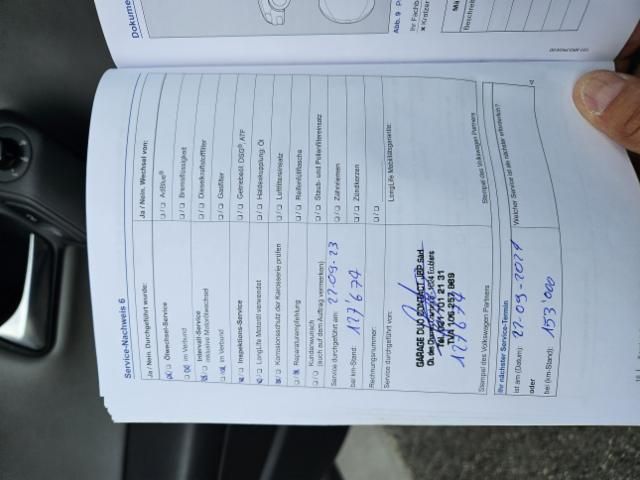 Service-Nachweis 6
Ja / Nein. Durchgeführt wurde:
Ölwechsel-Service
im Verbund
Intervall-Service
inklusive Motorölwechsel
im Verbund
Inspektions-Service
LongLife Motoröl verwendet
Korrosionsschutz der Karosserie prüfen
Reparaturempfehlung
Kundenwunsch
(auch auf dem Auftrag vermerken)
Service durchgeführt am: 27-09-23
bei km-Stand: 127'674
Rechnungsnummer:
Service durchgeführt von:
GARAGE DUO
127'674
Stempel des Volkswagen Partners
Ja / Nein. Wechsel von:
AdBlue®
Bremsflüssigkeit
Dieselkraftstofffilter
Gasfilter
Getriebeöl: DSG®, ATF
Haldexkupplung: Öl
Luftfiltereinsatz
Reifenfüllflasche
Staub- und Pollenfiltereinsatz
Zahnriemen
Zündkerzen
LongLife Mobilitätsgarantie:
Stempel des Volkswagen Partners
Ihr nächster Service-Termin
ist am (Datum): 27-09-2024
oder
bei (km-Stand): 153'000
Welcher Service ist als nächster erforderlich?
Dokume
Abb. 9
Ihr Fachb
× Kratzer
Beschrei